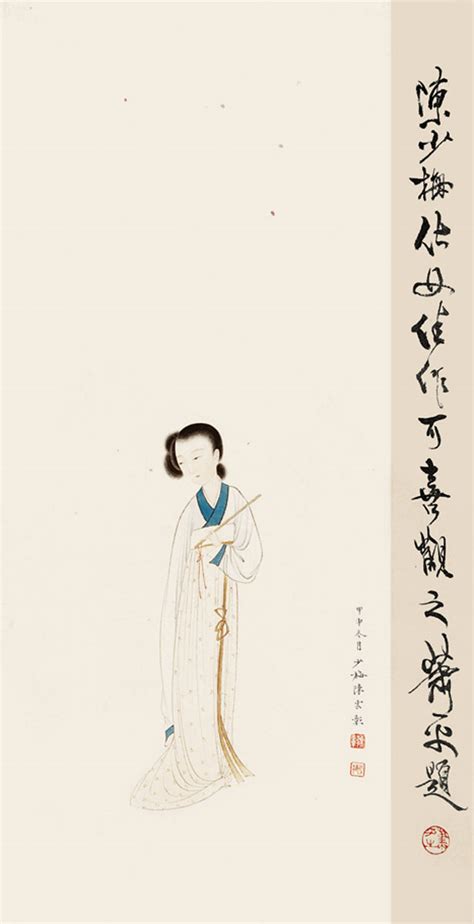 陳少梅仕女佳作可喜觀之蕭平題
甲申冬月少梅陳雲彰